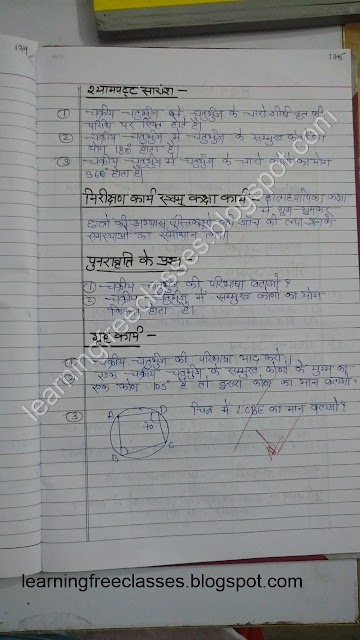 174
175
श्यामपट्ट सारांश -
① चक्रीय चतुर्भुज में चतुर्भुज के चारों शीर्ष वृत की
परिधि पर स्थित होते हैं।
② चक्रीय चतुर्भुज में चतुर्भुज के सम्मुख कोणों का
योग 180° होता है।
③ चक्रीय चतुर्भुज में चतुर्भुज के चारों कोणों का योग
360° होता है।
निरीक्षण कार्य एवम् कक्षा कार्य - छात्राध्यापिका कक्षा
में घूम-घूमकर
छात्रों की अभ्यास पुस्तिकाओं की जांच की तथा उनके
समस्याओं का समाधान किया।
पुनरावृति के प्रश्न -
① चक्रीय चतुर्भुज की परिभाषा बताओ?
② चक्रीय चतुर्भुज में सम्मुख कोणों का योग
कितना होता है।
गृह कार्य -
चक्रीय चतुर्भुज की परिभाषा याद करो।
एक चक्रीय चतुर्भुज के सम्मुख कोणों के युग्म का
एक कोण 105° है तो दुसरा कोण का मान बताओ?
③ चित्र में ∠CBE का मान बताओ?
A D
70
B C
learningfreeclasses.blogspot.com
learningfreeclasses.blogspot.com